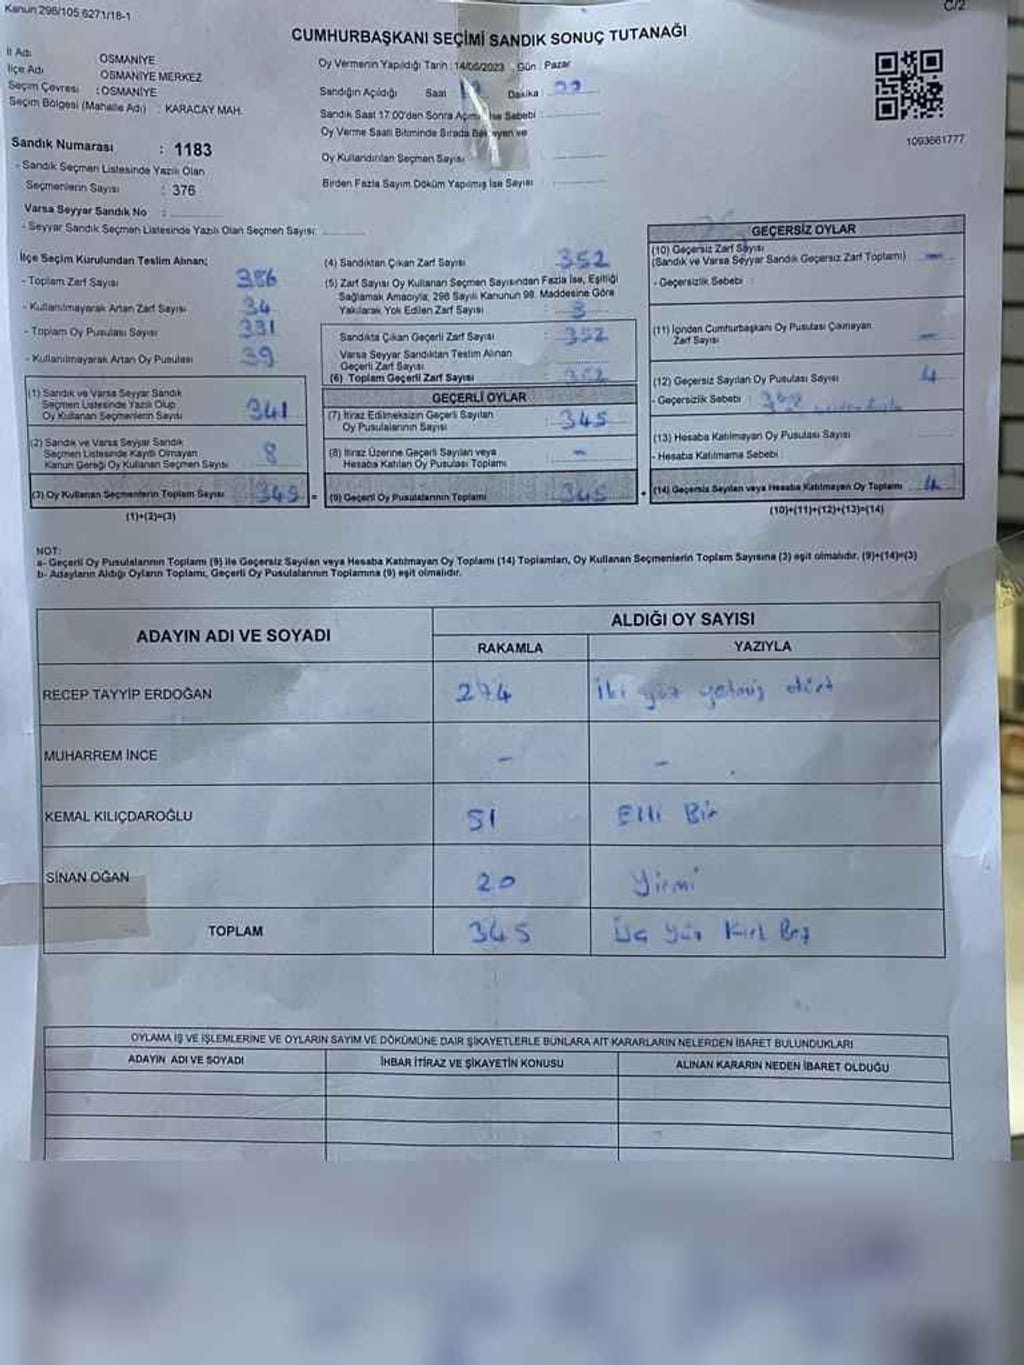 Kanun 298/105 6271/18-1
C/2
CUMHURBAŞKANI SEÇİMİ SANDIK SONUÇ TUTANAĞI
İl Adı OSMANİYE
İlçe Adı OSMANİYE MERKEZ
Seçim Çevresi : OSMANİYE
Seçim Bölgesi (Mahalle Adı) : KARACAY MAH.
Sandık Numarası : 1183
- Sandık Seçmen Listesinde Yazılı Olan
Seçmenlerin Sayısı : 376
Varsa Seyyar Sandık No :
- Seyyar Sandık Seçmen Listesinde Yazılı Olan Seçmen Sayısı:
Oy Vermenin Yapıldığı Tarih : 14/05/2023 Gün : Pazar
Sandığın Açıldığı Saat Dakika :
Sandık Saat 17.00'den Sonra Açılmış İse Sebebi :
Oy Verme Saati Bitiminde Sırada Bekleyen ve
Oy Kullandırılan Seçmen Sayısı
Birden Fazla Sayım Döküm Yapılmış İse Sayısı
1093661777
İlçe Seçim Kurulundan Teslim Alınan;
- Toplam Zarf Sayısı 386
- Kullanılmayarak Artan Zarf Sayısı 34
- Toplam Oy Pusulası Sayısı 331
- Kullanılmayarak Artan Oy Pusulası 39
(1) Sandık ve Varsa Seyyar Sandık
Seçmen Listesinde Yazılı Olup
Oy Kullanan Seçmenlerin Sayısı 341
(2) Sandık ve Varsa Seyyar Sandık
Seçmen Listesinde Kayıtlı Olmayan
Kanun Gereği Oy Kullanan Seçmen Sayısı 8
(3) Oy Kullanan Seçmenlerin Toplam Sayısı 349 =
(1)+(2)=(3)
(4) Sandıktan Çıkan Zarf Sayısı 352
(5) Zarf Sayısı Oy Kullanan Seçmen Sayısından Fazla İse, Eşitliği
Sağlamak Amacıyla; 298 Sayılı Kanunun 98. Maddesine Göre
Yakılarak Yok Edilen Zarf Sayısı : 3
Sandıkta Çıkan Geçerli Zarf Sayısı : 352
Varsa Seyyar Sandıktan Teslim Alınan
Geçerli Zarf Sayısı
(6) Toplam Geçerli Zarf Sayısı : 352
GEÇERLİ OYLAR
(7) İtiraz Edilmeksizin Geçerli Sayılan
Oy Pusulalarının Sayısı : 345
(8) İtiraz Üzerine Geçerli Sayılan veya
Hesaba Katılan Oy Pusulası Toplamı -
(9) Geçerli Oy Pusulalarının Toplamı 345 +
GEÇERSİZ OYLAR
(10) Geçersiz Zarf Sayısı
(Sandık ve Varsa Seyyar Sandık Geçersiz Zarf Toplamı) -
- Geçersizlik Sebebi :
(11) İçinden Cumhurbaşkanı Oy Pusulası Çıkmayan
Zarf Sayısı -
(12) Geçersiz Sayılan Oy Pusulası Sayısı 4
- Geçersizlik Sebebi :
(13) Hesaba Katılmayan Oy Pusulası Sayısı
- Hesaba Katılmama Sebebi :
(14) Geçersiz Sayılan veya Hesaba Katılmayan Oy Toplamı 4
(10)+(11)+(12)+(13)=(14)
NOT:
a- Geçerli Oy Pusulalarının Toplamı (9) ile Geçersiz Sayılan veya Hesaba Katılmayan Oy Toplamı (14) Toplamları, Oy Kullanan Seçmenlerin Toplam Sayısına (3) eşit olmalıdır. (9)+(14)=(3)
b- Adayların Aldığı Oyların Toplamı, Geçerli Oy Pusulalarının Toplamına (9) eşit olmalıdır.
ADAYIN ADI VE SOYADI ALDIĞI OY SAYISI
RAKAMLA YAZIYLA
RECEP TAYYİP ERDOĞAN 274 İki yüz yetmiş dört
MUHARREM İNCE - -
KEMAL KILIÇDAROĞLU 51 Elli Bir
SİNAN OĞAN 20 Yirmi
TOPLAM 345 Üç yüz Kırk Beş
OYLAMA İŞ VE İŞLEMLERİNE VE OYLARIN SAYIM VE DÖKÜMÜNE DAİR ŞİKAYETLERLE BUNLARA AİT KARARLARIN NELERDEN İBARET BULUNDUKLARI
ADAYIN ADI VE SOYADI İHBAR İTİRAZ VE ŞİKAYETİN KONUSU ALINAN KARARIN NEDEN İBARET OLDUĞU